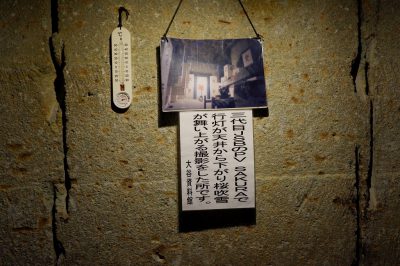 三代目JSBのCV SAKURAで
行灯が天井から下がり桜吹雪
が舞い上がる撮影をした所です。
大谷資料館